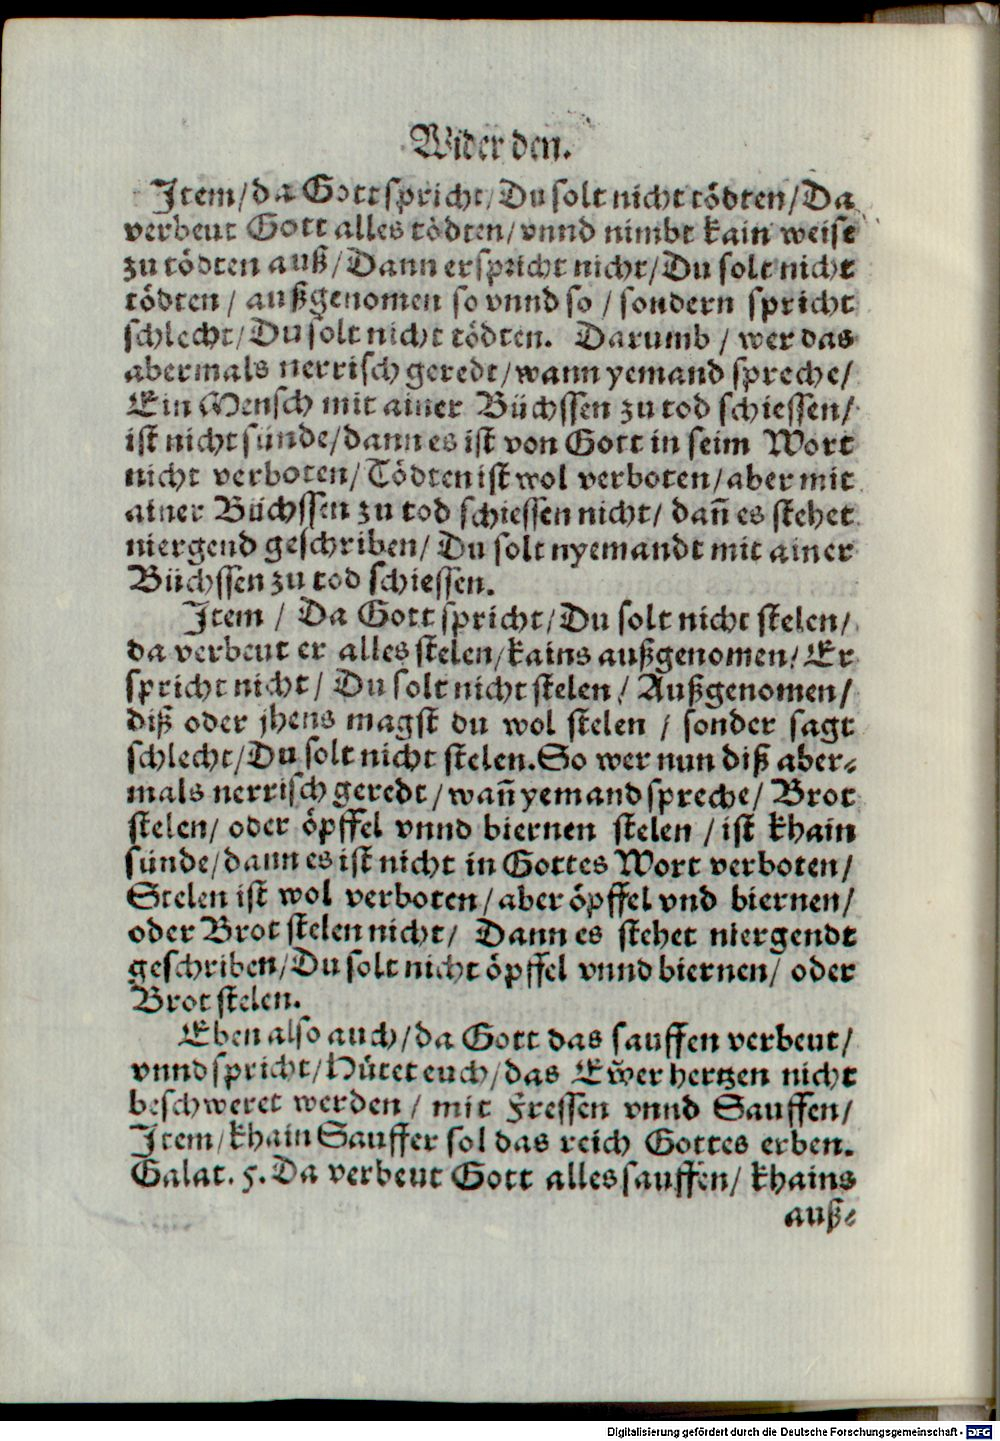 Wider den.
Item/da Gott spricht/Du solt nicht tödten/Da
verbeut Gott alles tödten/vnnd nimbt kain weise
zu tödten auß/Dann er spricht nicht/Du solt nicht
tödten / außgenomen so vnnd so / sondern spricht
schlecht/Du solt nicht tödten. Darumb / wer das
abermals nerrisch geredt/wann yemand spreche/
Ein Mensch mit ainer Büchssen zu tod schiessen/
ist nicht sünde/dann es ist von Gott in seim Wort
nicht verboten/Tödten ist wol verboten/aber mit
ainer Büchssen zu tod schiessen nicht/ dañ es stehet
niergend geschriben/ Du solt nyemandt mit ainer
Büchssen zu tod schiessen.
Item / Da Gott spricht/Du solt nicht stelen/
da verbeut er alles stelen/kains außgenomen/Er
spricht nicht/ Du solt nicht stelen/ Außgenomen/
diß oder jhens magst du wol stelen / sonder sagt
schlecht/Du solt nicht stelen. So wer nun diß aber⸗
mals nerrisch geredt/wañ yemand spreche/ Brot
stelen/ oder öpffel vnnd biernen stelen / ist khain
sünde/dann es ist nicht in Gottes Wort verboten/
Stelen ist wol verboten/aber öpffel vnd biernen/
oder Brot stelen nicht/ Dann es stehet niergendt
geschriben/Du solt nicht öpffel vnnd biernen/ oder
Brot stelen.
Eben also auch/da Gott das sauffen verbeut/
vnnd spricht/Hütet euch/das Ewer hertzen nicht
beschweret werden / mit Fressen vnnd Sauffen/
Item/khain Sauffer sol das reich Gottes erben.
Galat. 5. Da verbeut Gott alles sauffen/ khains
auß⸗
Digitalisierung gefördert durch die Deutsche Forschungsgemeinschaft - DFG